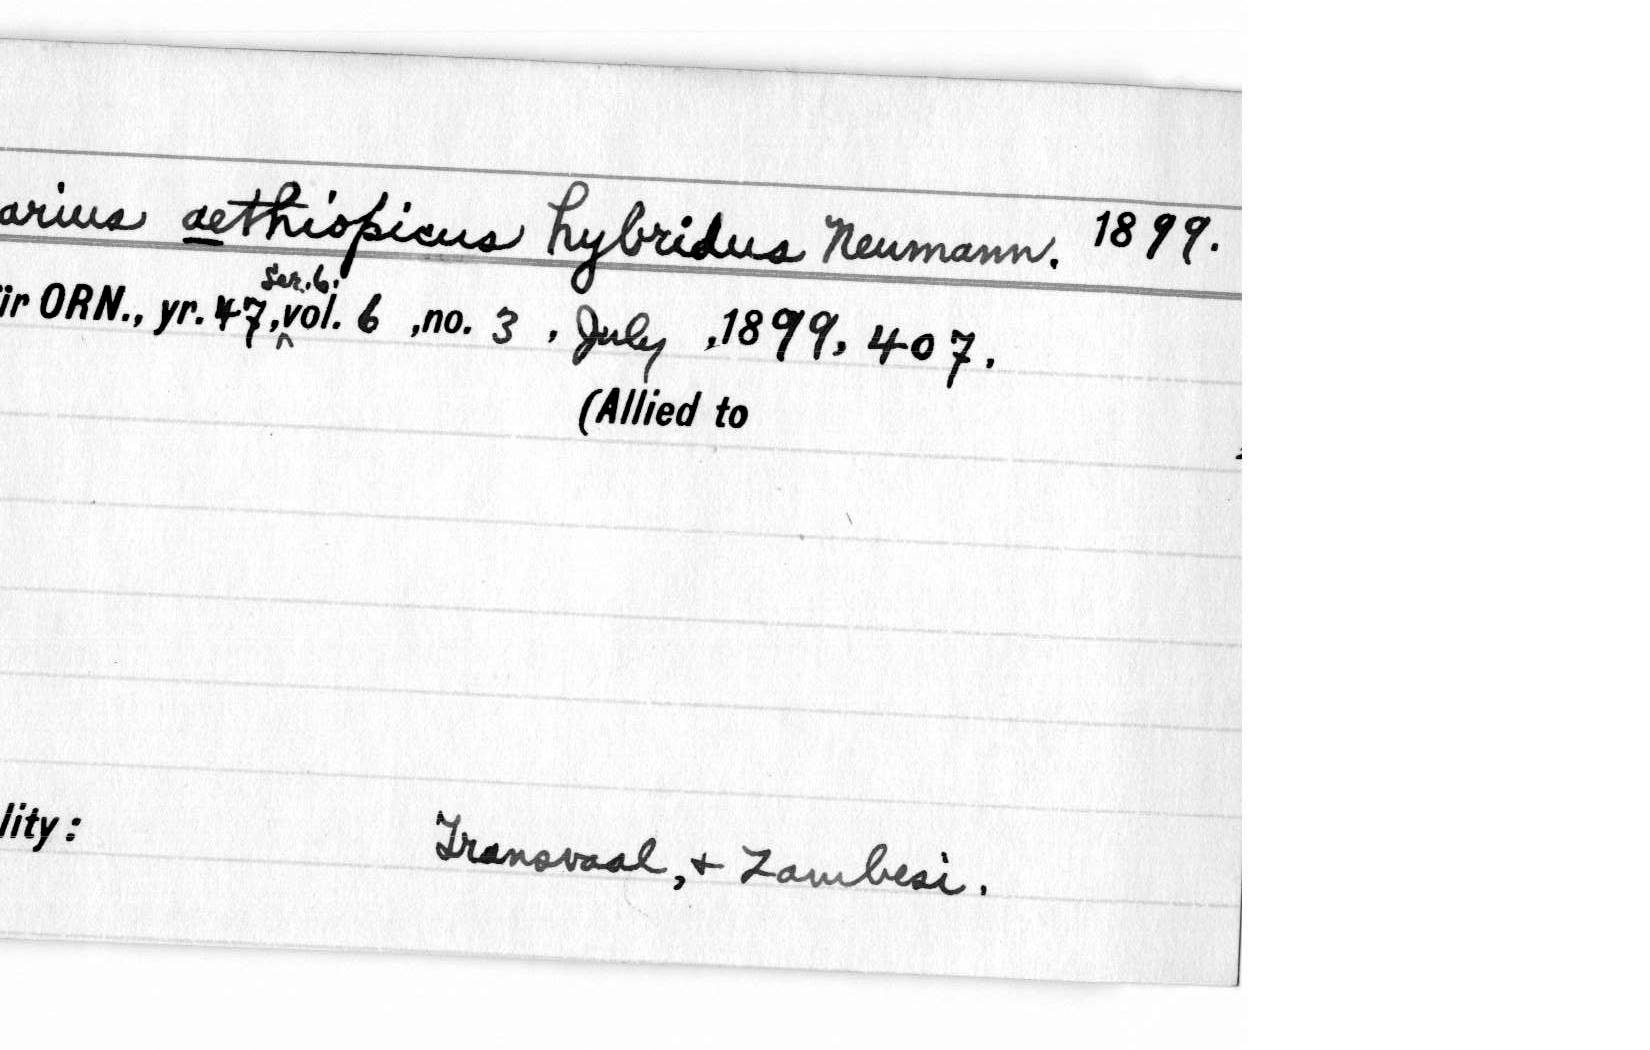 arius aethiopicus hybridus Neumann. 1899.
Ser. 6.
ür ORN., yr. 47, vol. 6 , no. 3 , July , 1899, 407.
(Allied to
lity: Transvaal, + Zambesi.